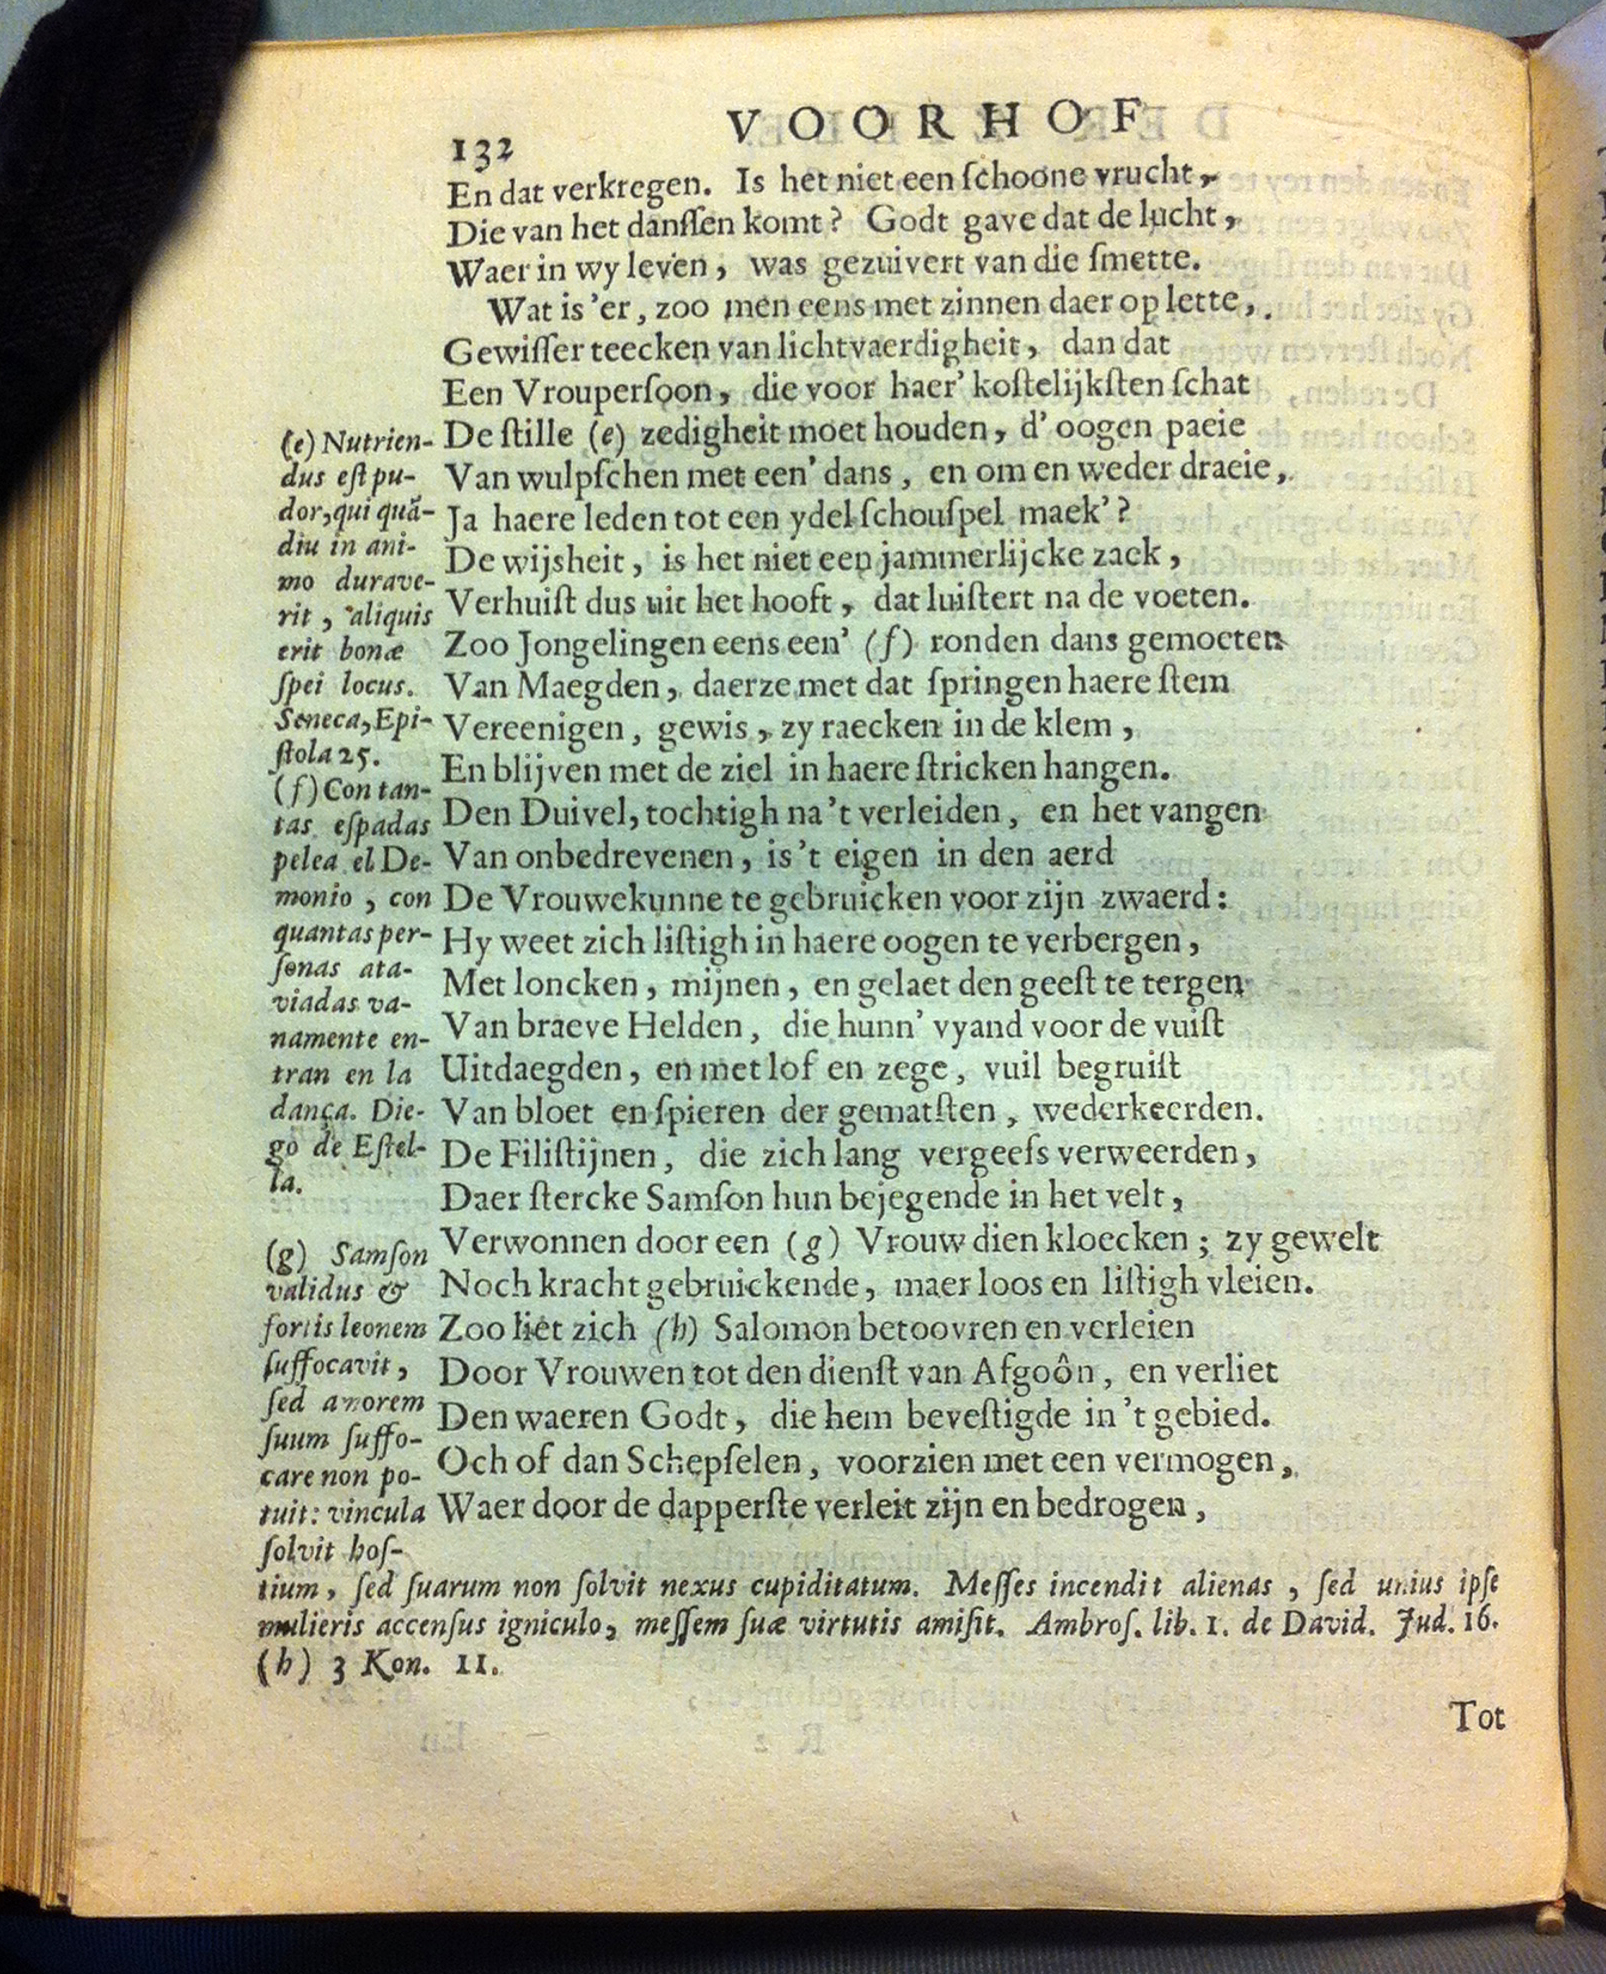 VOORHOF
132
En dat verkregen. Is het niet een ſchoone vrucht,
Die van het danſſen komt? Godt gave dat de lucht,
Waer in wy leven, was gezuivert van die ſmette.
Wat is 'er, zoo men eens met zinnen daer op lette,
Gewiſſer teecken van lichtvaerdigheit, dan dat
Een Vrouperſoon, die voor haer' koſtelijkſten ſchat
De ſtille (e) zedigheit moet houden, d' oogen paeie
Van wulpſchen met een' dans, en om en weder draeie,
Ja haere leden tot een ydel ſchouſpel maek'?
De wijsheit, is het niet een jammerlijcke zaek,
Verhuiſt dus uit het hooft, dat luiſtert na de voeten.
Zoo Jongelingen eens een' (f) ronden dans gemoeten
Van Maegden, daerze met dat ſpringen haere ſtem
Vereenigen, gewis, zy raecken in de klem,
En blijven met de ziel in haere ſtricken hangen.
Den Duivel, tochtigh na 't verleiden, en het vangen
Van onbedrevenen, is 't eigen in den aerd
De Vrouwekunne te gebruicken voor zijn zwaerd:
Hy weet zich liſtigh in haere oogen te verbergen,
Met loncken, mijnen, en gelaet den geeſt te tergen
Van braeve Helden, die hunn' vyand voor de vuiſt
Uitdaegden, en met lof en zege, vuil begruiſt
Van bloet en ſpieren der gematſten, wederkeerden.
De Filiſtijnen, die zich lang vergeefs verweerden,
Daer ſtercke Samſon hun bejegende in het velt,
Verwonnen door een (g) Vrouw dien kloecken; zy gewelt
Noch kracht gebruickende, maer loos en liſtigh vleien.
Zoo liet zich (h) Salomon betoovren en verleien
Door Vrouwen tot den dienſt van Afgoôn, en verliet
Den waeren Godt, die hem beveſtigde in 't gebied.
Och of dan Schepſelen, voorzien met een vermogen,
Waer door de dapperſte verleit zijn en bedrogen,
(e) Nutrien-
dus eſt pu-
dor, qui quā-
diu in ani-
mo durave-
rit, aliquis
erit bonæ
ſpei locus.
Seneca, Epi-
ſtola 25.
(f) Con tan-
tas eſpadas
pelea el De-
monio, con
quantas per-
ſonas ata-
viadas va-
namente en-
tran en la
dança. Die-
go de Eſtel-
la.
(g) Samſon
validus &
fortis leonem
ſuffocavit,
ſed amorem
ſuum ſuffo-
care non po-
tuit: vincula
ſolvit hoſ-
tium, ſed ſuarum non ſolvit nexus cupiditatum. Meſſes incendit alienas, ſed unius ipſe
mulieris accenſus igniculo, meſſem ſuæ virtutis amiſit. Ambroſ. lib. 1. de David. Jud. 16.
(h) 3 Kon. 11.
Tot